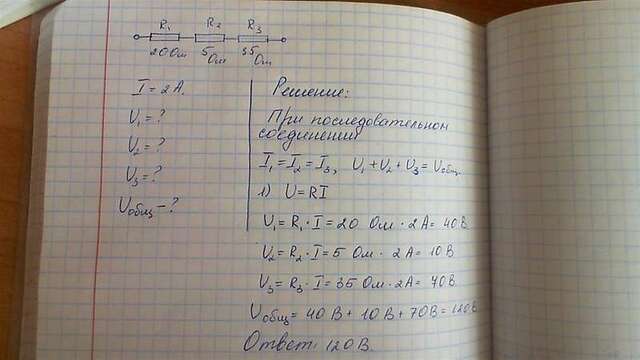 R₁ R₂ R₃
20 Ом 5 Ом 35 Ом
I = 2А.
U₁ = ?
U₂ = ?
U₃ = ?
Uобщ – ?
Решение:
При последовательном
соединении
I₁ = I₂ = I₃, U₁ + U₂ + U₃ = Uобщ.
1) U = RI
U₁ = R₁ · I = 20 Ом · 2А = 40 В
U₂ = R₂ · I = 5 Ом · 2А = 10 В
U₃ = R₃ · I = 35 Ом · 2А = 70 В
Uобщ = 40 В + 10 В + 70 В = 120 В
Ответ: 120 В.